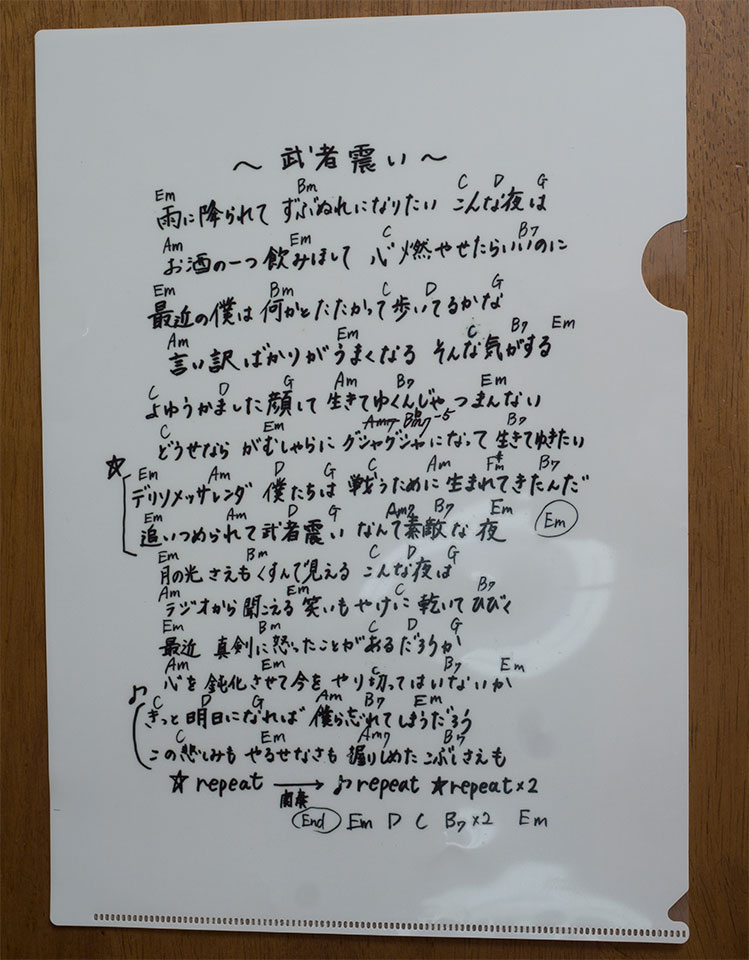 ～武者震い～
Em Bm C D G
雨に降られて ずぶぬれになりたい こんな夜は
Am Em C B7
お酒の一つ飲みほして 心燃やせたらいいのに
Em Bm C D G
最近の僕は 何かとたたかって歩いてるかな
Am Em C B7 Em
言い訳ばかりがうまくなる そんな気がする
C D G Am B7 Em
よゆうかました顔して 生きてゆくんじゃ つまんない
C Em B7
どうせなら がむしゃらに グシャグシャになって 生きてゆきたい
☆ Em Am D G C Am F#m B7
デリソメッサレンダ 僕たちは 戦うために 生まれてきたんだ
Em Am D G Am7 B7 Em
追いつめられて武者震い なんて素敵な 夜 Em
Em Bm C D G
月の光さえもくすんで見える こんな夜は
Am Em C B7
ラジオから聞こえる 笑いもやけに 乾いてひびく
Em Bm C D G
最近 真剣に怒ったことがあるだろうか
Am Em C B7 Em
心を鈍化させて今を やり切ってはいないか
♪ C D G Am B7 Em
きっと明日になれば 僕ら忘れてしまうだろう
C Em Am7 B7
この悲しみも やるせなさも 握りしめた こぶしさえも
☆repeat → ♪repeat ☆repeat×2
間奏
End Em D C B7×2 Em